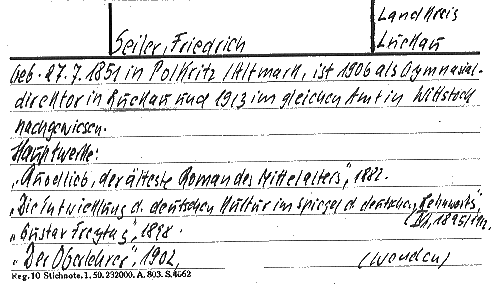 Landkreis
Seiler, Friedrich
Luckau
geb. 27.7.1851 in Polkritz/Altmark, ist 1906 als Gymnasial-
direktor in Luckau und 1913 im gleichen Amt in Wittstock
nachgewiesen.
Hauptwerke:
„Ruodlieb, der älteste Roman des Mittelalters", 1882.
„Die Entwicklung d. deutschen Kultur im Spiegel d. deutschen Lehnworts",
1895/1912.
„Gustav Freytag", 1898.
„Der Oberlehrer", 1902.
Reg. 10 Stichnote. 1. 50. 232000. A. 803. S. 4662